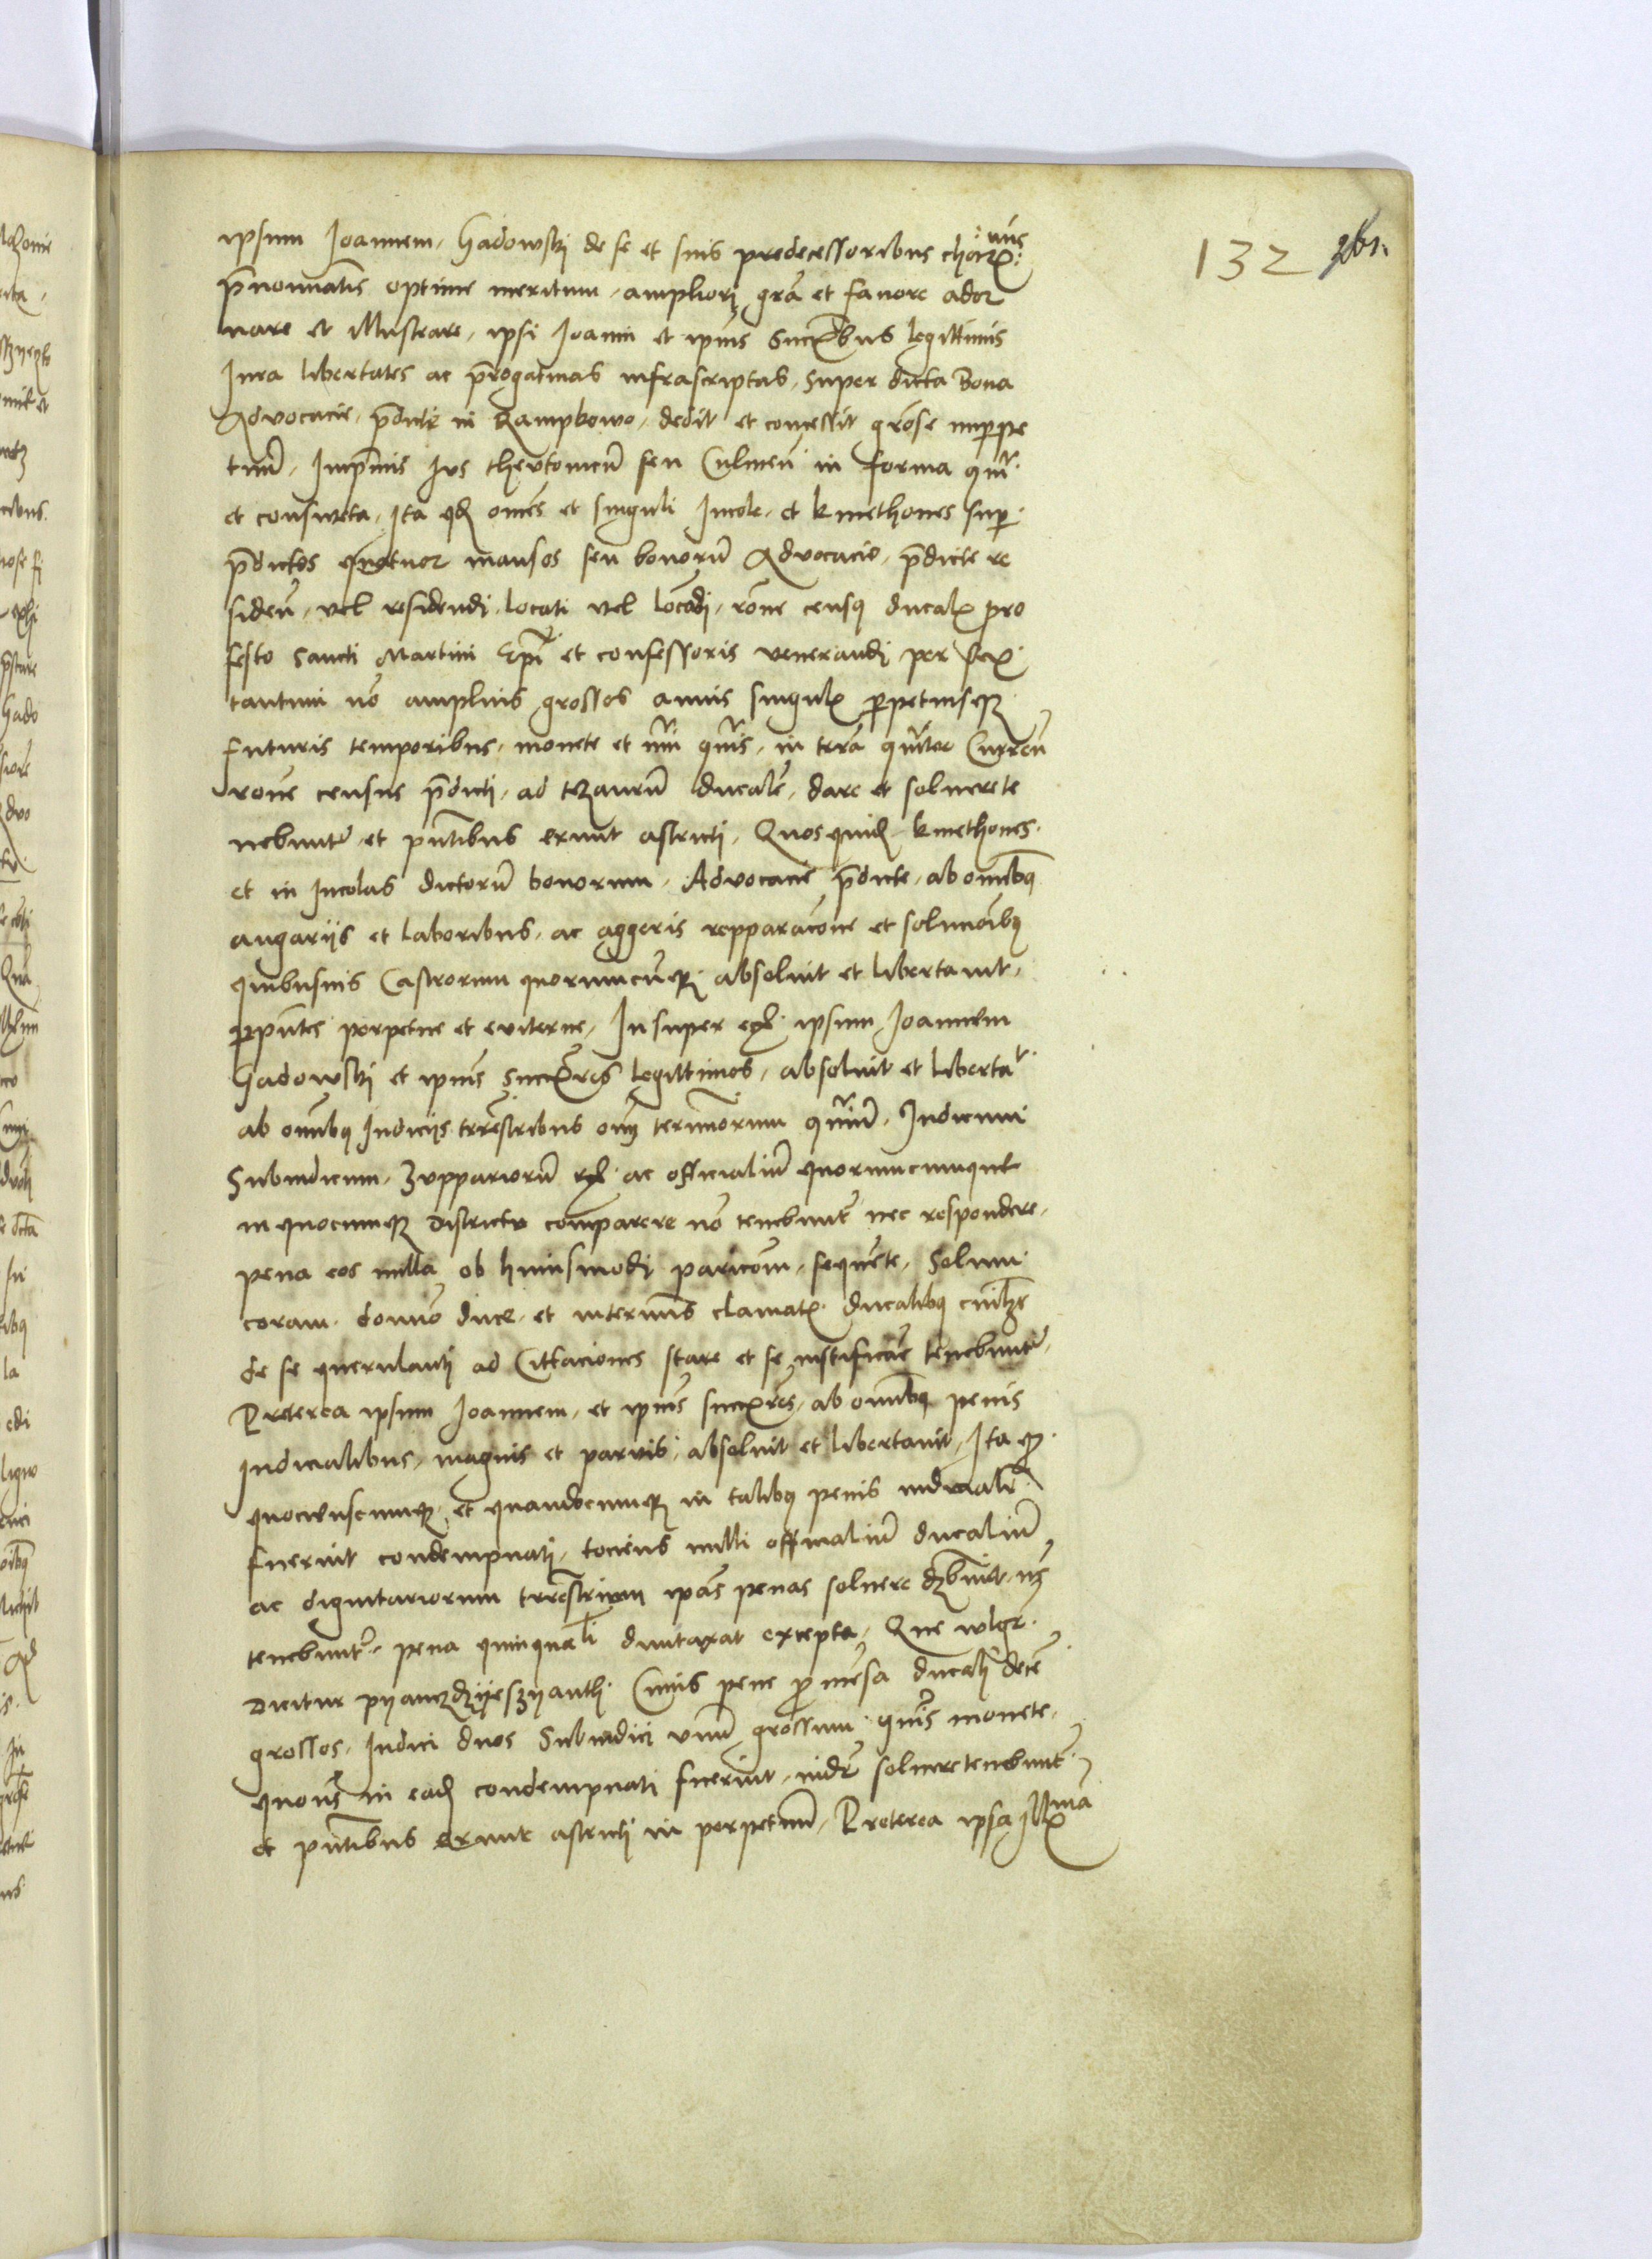 132 261.
ipsum Joannem Gadowski de se et suis predecessoribus charmis
p̄nominatis optime meritum ampliori grā et favore ador
nare et illustrare, ipsi Joanni et ipius Succ̄ribus legittimis
Jura libertates ac p̄rogativas infrascriptas, super dicta Bona
Advocacie, p̄dicte in Kampkowo, dedit et concessit grōse inperpe
tuū, Inprimis Jus thevtonicū seu Culmeñ in forma qmͬ
et consweta, Ita qd om̄es et singuli Incole, et kmethones sup
p̄dictos quatuor mansos seu bonorū Advocacie, p̄dicte re
sideñ, vel residendi, locati vel locādi, rōne census ducalis pro
festo Sancti Martini Ep̄i et confessoris venerandi per sex
tantum nō amplius grossos annis singulis perpetuisque
futuris temporibus, monete et nūi qm̄is, in terrā qmͬter Curreñ
rōne census p̄dicti, ad tezaurū ducalē, dare et solvere te
nebuntur et p̄ntibus erunt astricti, Quosquid kmethones
et in Incolas dictorū bonorum, Advocacie p̄dicte, ab omnibus
angariis et laboribus, ac aggeris repparacōne et solucōibus
quibusvis Castrorum quorumcūque, absolvit et libertavit,
per p̄ntes perpetue et eviterne, Insuper ipsum Joannem
Gadowski et ipius Succ̄res legittimos, absolvit et libertaͭ
ab omibus Judiciis trrēstribus om̄ terminorum qmͬiū, Judicum
Subiudicum, Zuppariorū ac officialiū quorumcumque
in quocumque districtu comparere nō tenebuntͬ nec respondere,
pena eos nulla ob huiusmodi paricōm, sequente, Solum
coram domino duce, et in terminis clamatis ducalibus cuilibet
de se querulanti ad Cittaciones stare et se iustificāre tenebuntͬ,
Preterea ipsum Joannem, et ipius succ̄res, ab omnibus penis
iudicialibus, magnis et parvis, absolvit et libertavit, Ita quod
quociescumque et quandocumque in talibus penis iudicialͬ
fuerint condempnati, tociens nulli officialiū ducaliū
ac dignitariorum trrēstrium ipās penas solvere debunt,
tenebuntͬ, pena quinqualͥ dumtaxat excepta, Que wlgr
dicitur pyanczdzyeszyanth Cuius pene p mēsa ducali decē
grossos, Judici duos Subiudici unū grossum qm̄is monete,
quoties in ead condempnati fuerint, solvere tenebuntͬ
et p̄ntibus erunt astricti in perpetuū, Preterea ipsa Illma